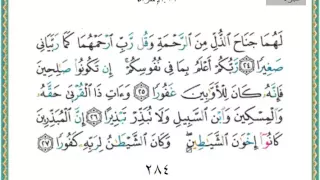 لَهُمَا جَنَاحَ ٱلذُّلِّ مِنَ ٱلرَّحْمَةِ وَقُل رَّبِّ ٱرْحَمْهُمَا كَمَا رَبَّيَانِى
صَغِيرًا ٢٤ رَّبُّكُمْ أَعْلَمُ بِمَا فِى نُفُوسِكُمْ ۚ إِن تَكُونُوا۟ صَٰلِحِينَ
فَإِنَّهُۥ كَانَ لِلْأَوَّٰبِينَ غَفُورًا ٢٥ وَءَاتِ ذَا ٱلْقُرْبَىٰ حَقَّهُۥ
وَٱلْمِسْكِينَ وَٱبْنَ ٱلسَّبِيلِ وَلَا تُبَذِّرْ تَبْذِيرًا ٢٦ إِنَّ ٱلْمُبَذِّرِينَ
كَانُوٓا۟ إِخْوَٰنَ ٱلشَّيَٰطِينِ ۖ وَكَانَ ٱلشَّيْطَٰنُ لِرَبِّهِۦ كَفُورًا ٢٧
٢٨٤